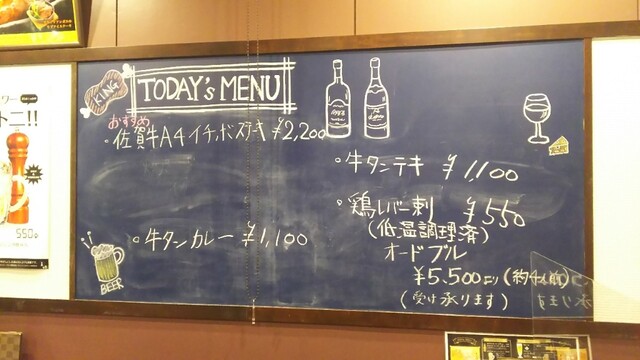 KING
TODAY's MENU
おすすめ
佐賀牛A4イチボステーキ ¥2,200
牛タンカレー ¥1,100
BEER
牛タンテキ ¥1,100
鶏レバー刺 ¥550
(低温調理済)
オードブル
¥5,500より
(受け承ります)
トニ!!
550